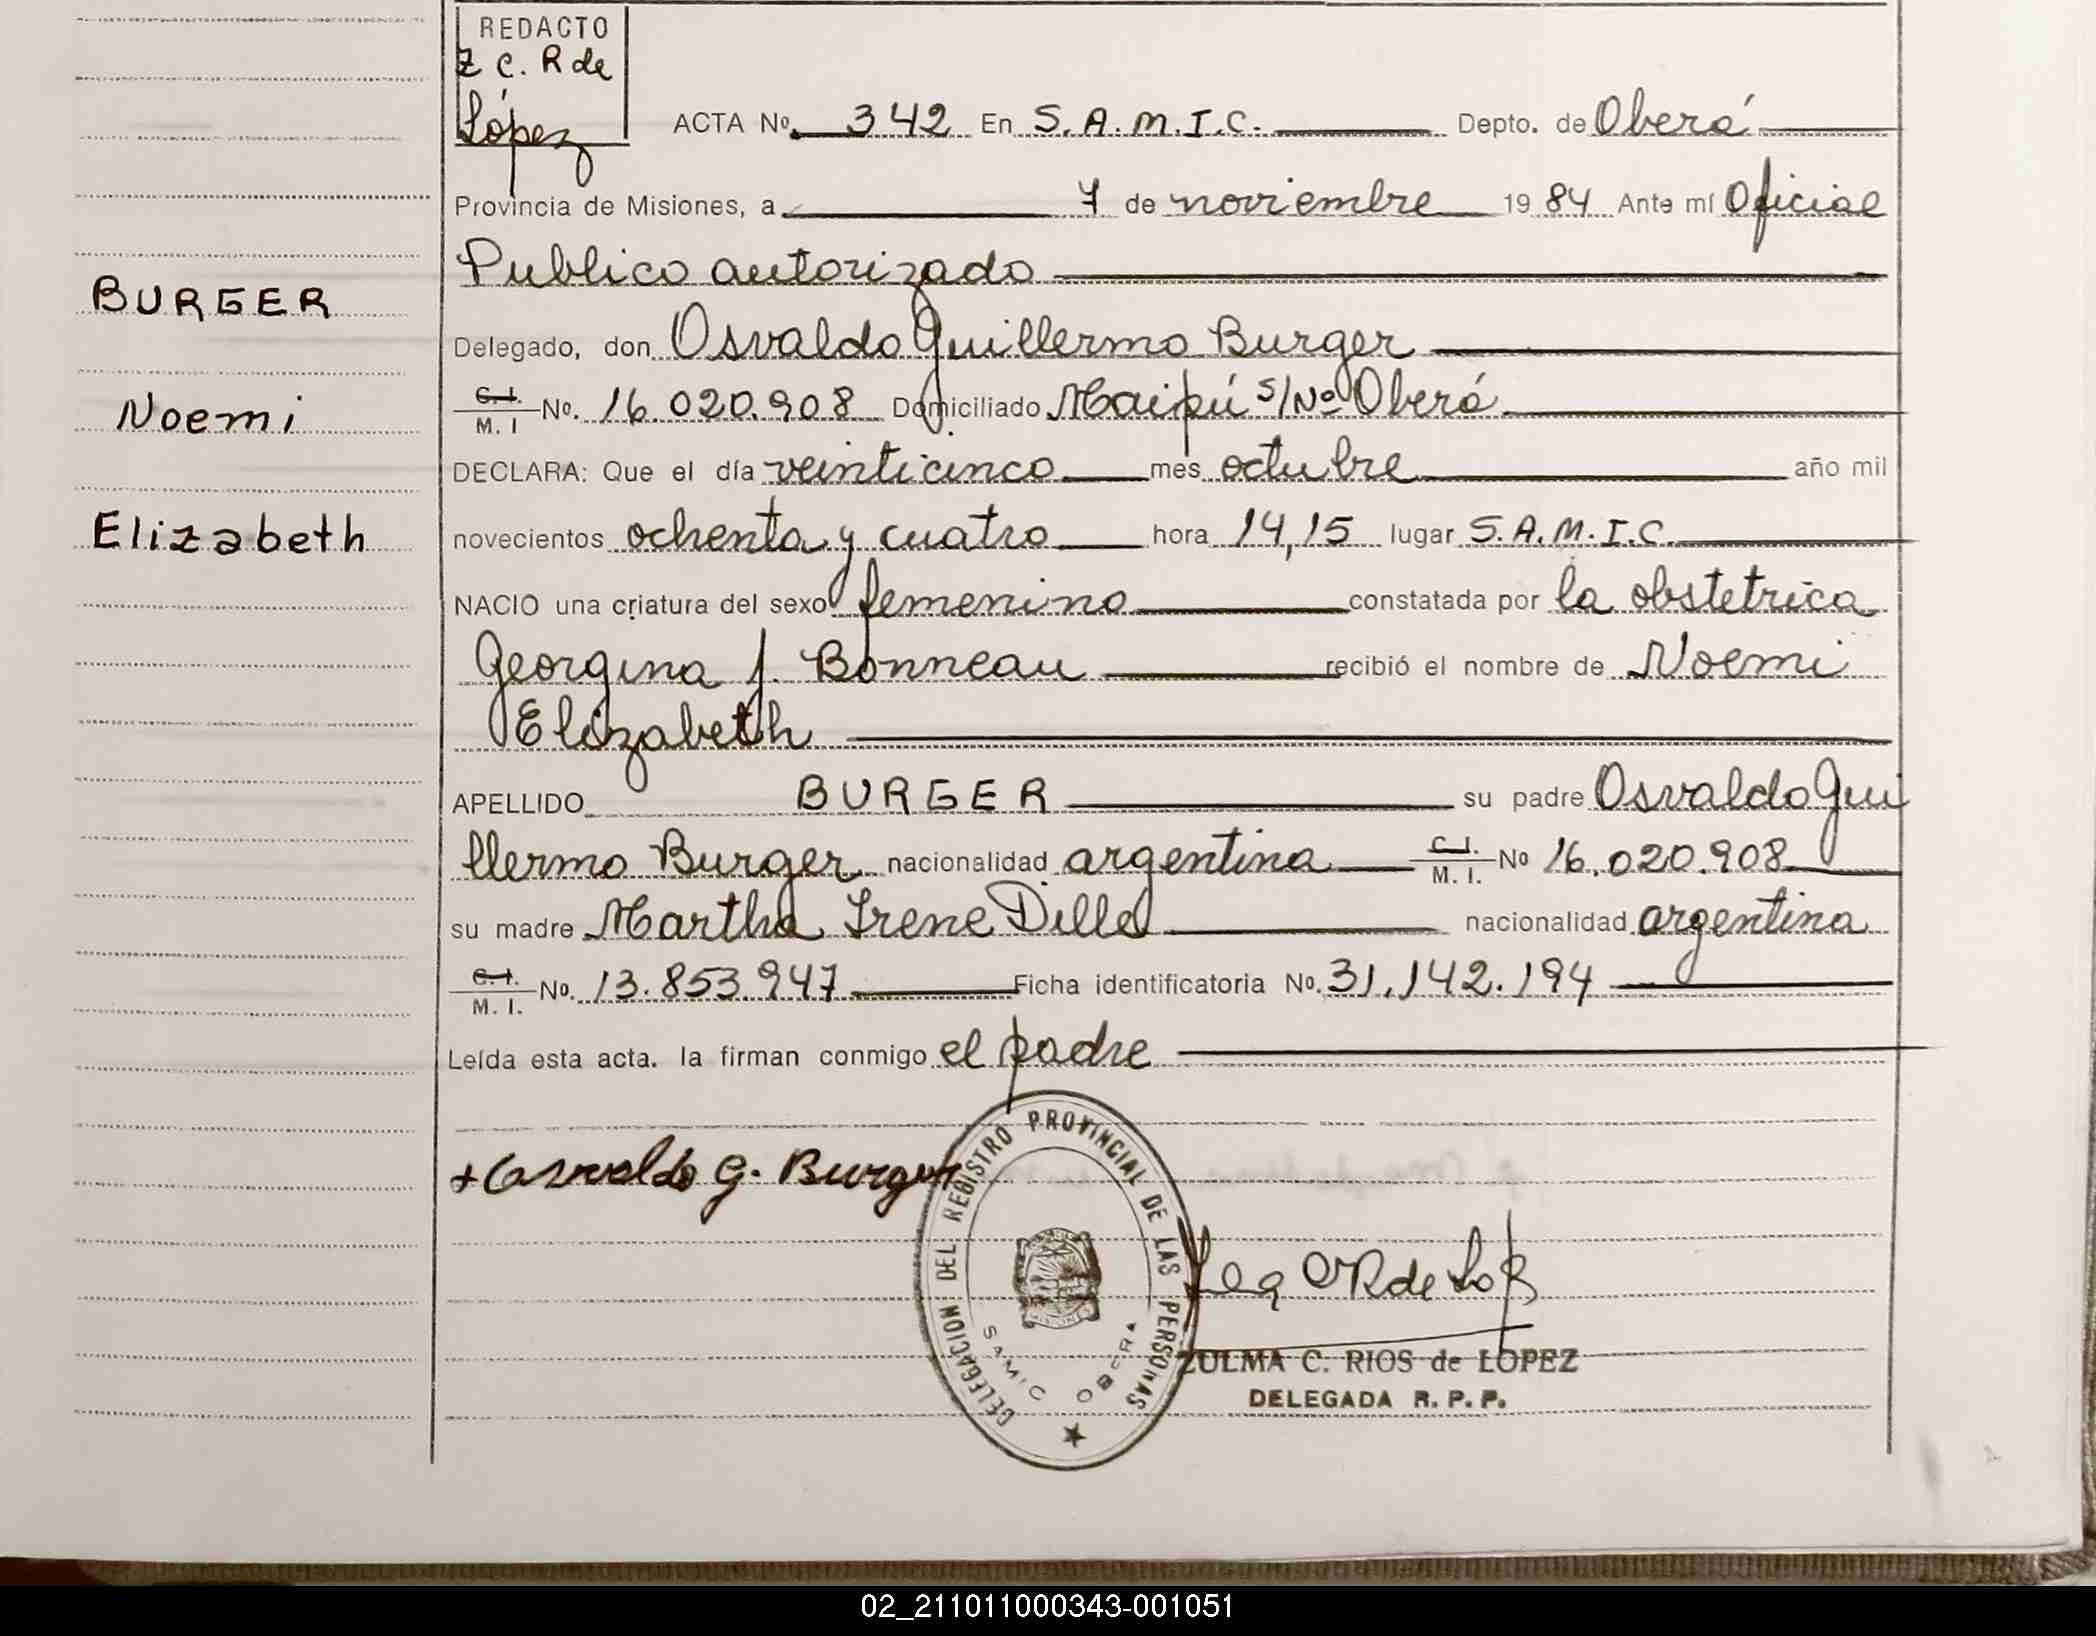 REDACTO
Z C. R de
López
ACTA No. 342 En S.A.M.I.C. Depto. de Oberá
Provincia de Misiones, a 7 de noviembre 1984 Ante mí Oficial
Publico autorizado
BURGER
Delegado, don Osvaldo Guillermo Burger
C.I. / M.I No. 16.020.908 Domiciliado Maipú s/No Oberá
Noemi
DECLARA: Que el día veinticinco mes octubre año mil
Elizabeth
novecientos ochenta y cuatro hora 14,15 lugar S.A.M.I.C.
NACIO una criatura del sexo femenino constatada por la obstetrica
Georgina J. Bonneau recibió el nombre de Noemi
Elizabeth
APELLIDO BURGER su padre Osvaldo Gui
llermo Burger nacionalidad argentina C.I. / M.I. No 16.020.908
su madre Martha Irene Dille nacionalidad argentina
C.I. / M.I. No. 13.853.947 Ficha identificatoria No. 31.142.194
Leída esta acta. la firman conmigo el padre
+ Osvaldo G. Burger
DELEGACION DEL REGISTRO PROVINCIAL DE LAS PERSONAS
SAMIC OBERA
ZULMA C. RIOS de LOPEZ
DELEGADA R. P. P.
02_211011000343-001051